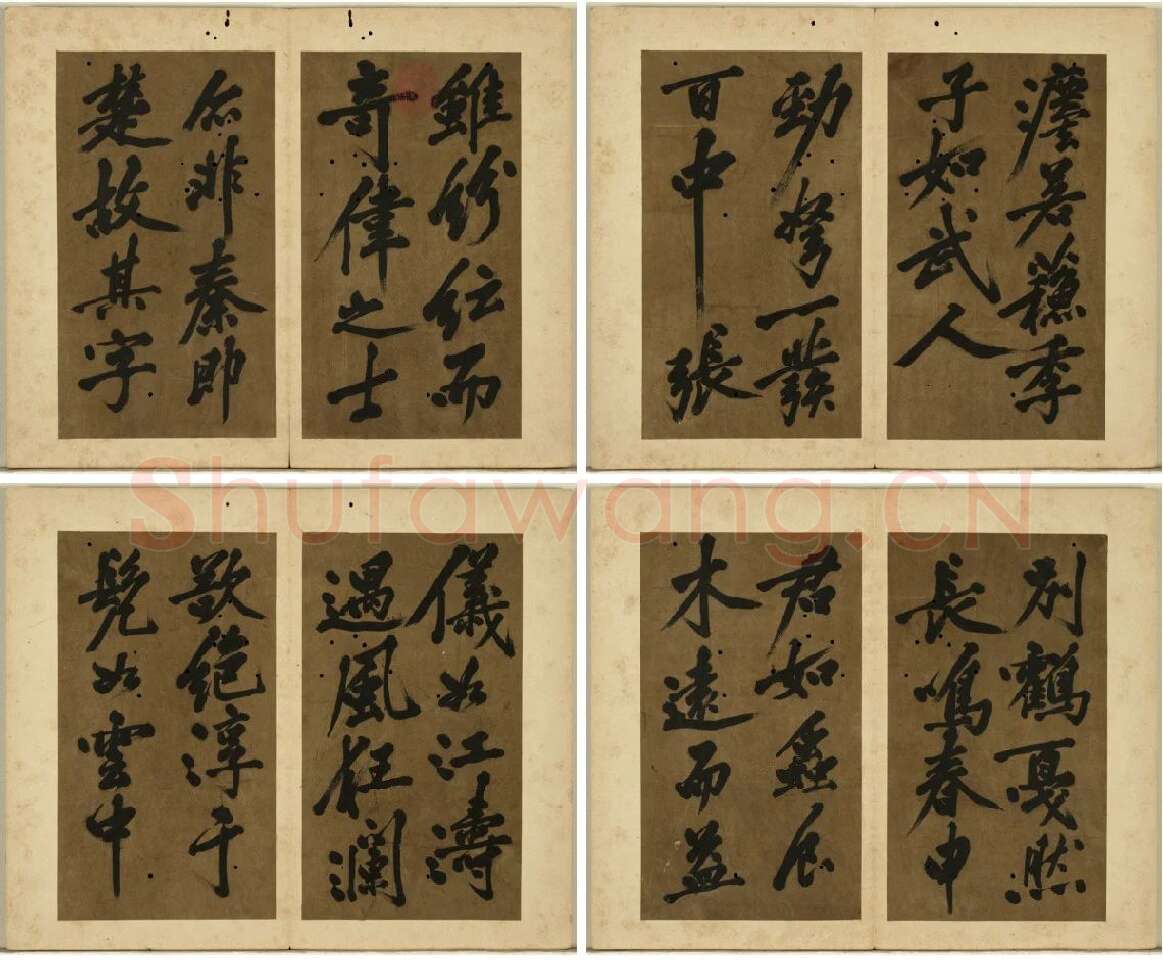 雖紛紜而
奇偉之士
亦非秦即
楚故其字
若蘓季
子如武人
勁弩一發
百中張
儀如江濤
遏風狂瀾
歘絕淳于
髡如雲中
別鶴戛然
長鳴春申
君如蟲食
木遠而益
Shufawang.CN